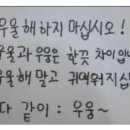 우울해하지 마십시오!
우울과 우웅은 한끗 차이입니
우울해 말고 귀여워지십
다 같이 : 우웅~